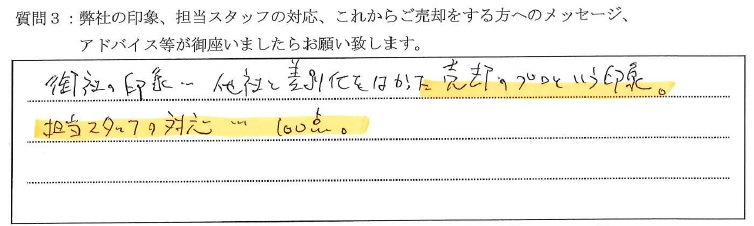 質問3：弊社の印象、担当スタッフの対応、これからご売却をする方へのメッセージ、
アドバイス等が御座いましたらお願い致します。
御社の印象… 他社と差別化をはかった売却のプロという印象。
担当スタッフの対応… 100点。